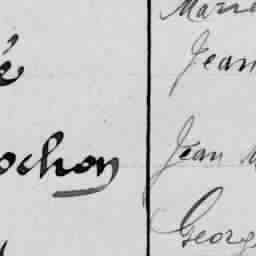 é
ochon
Jean
Jean
Georg